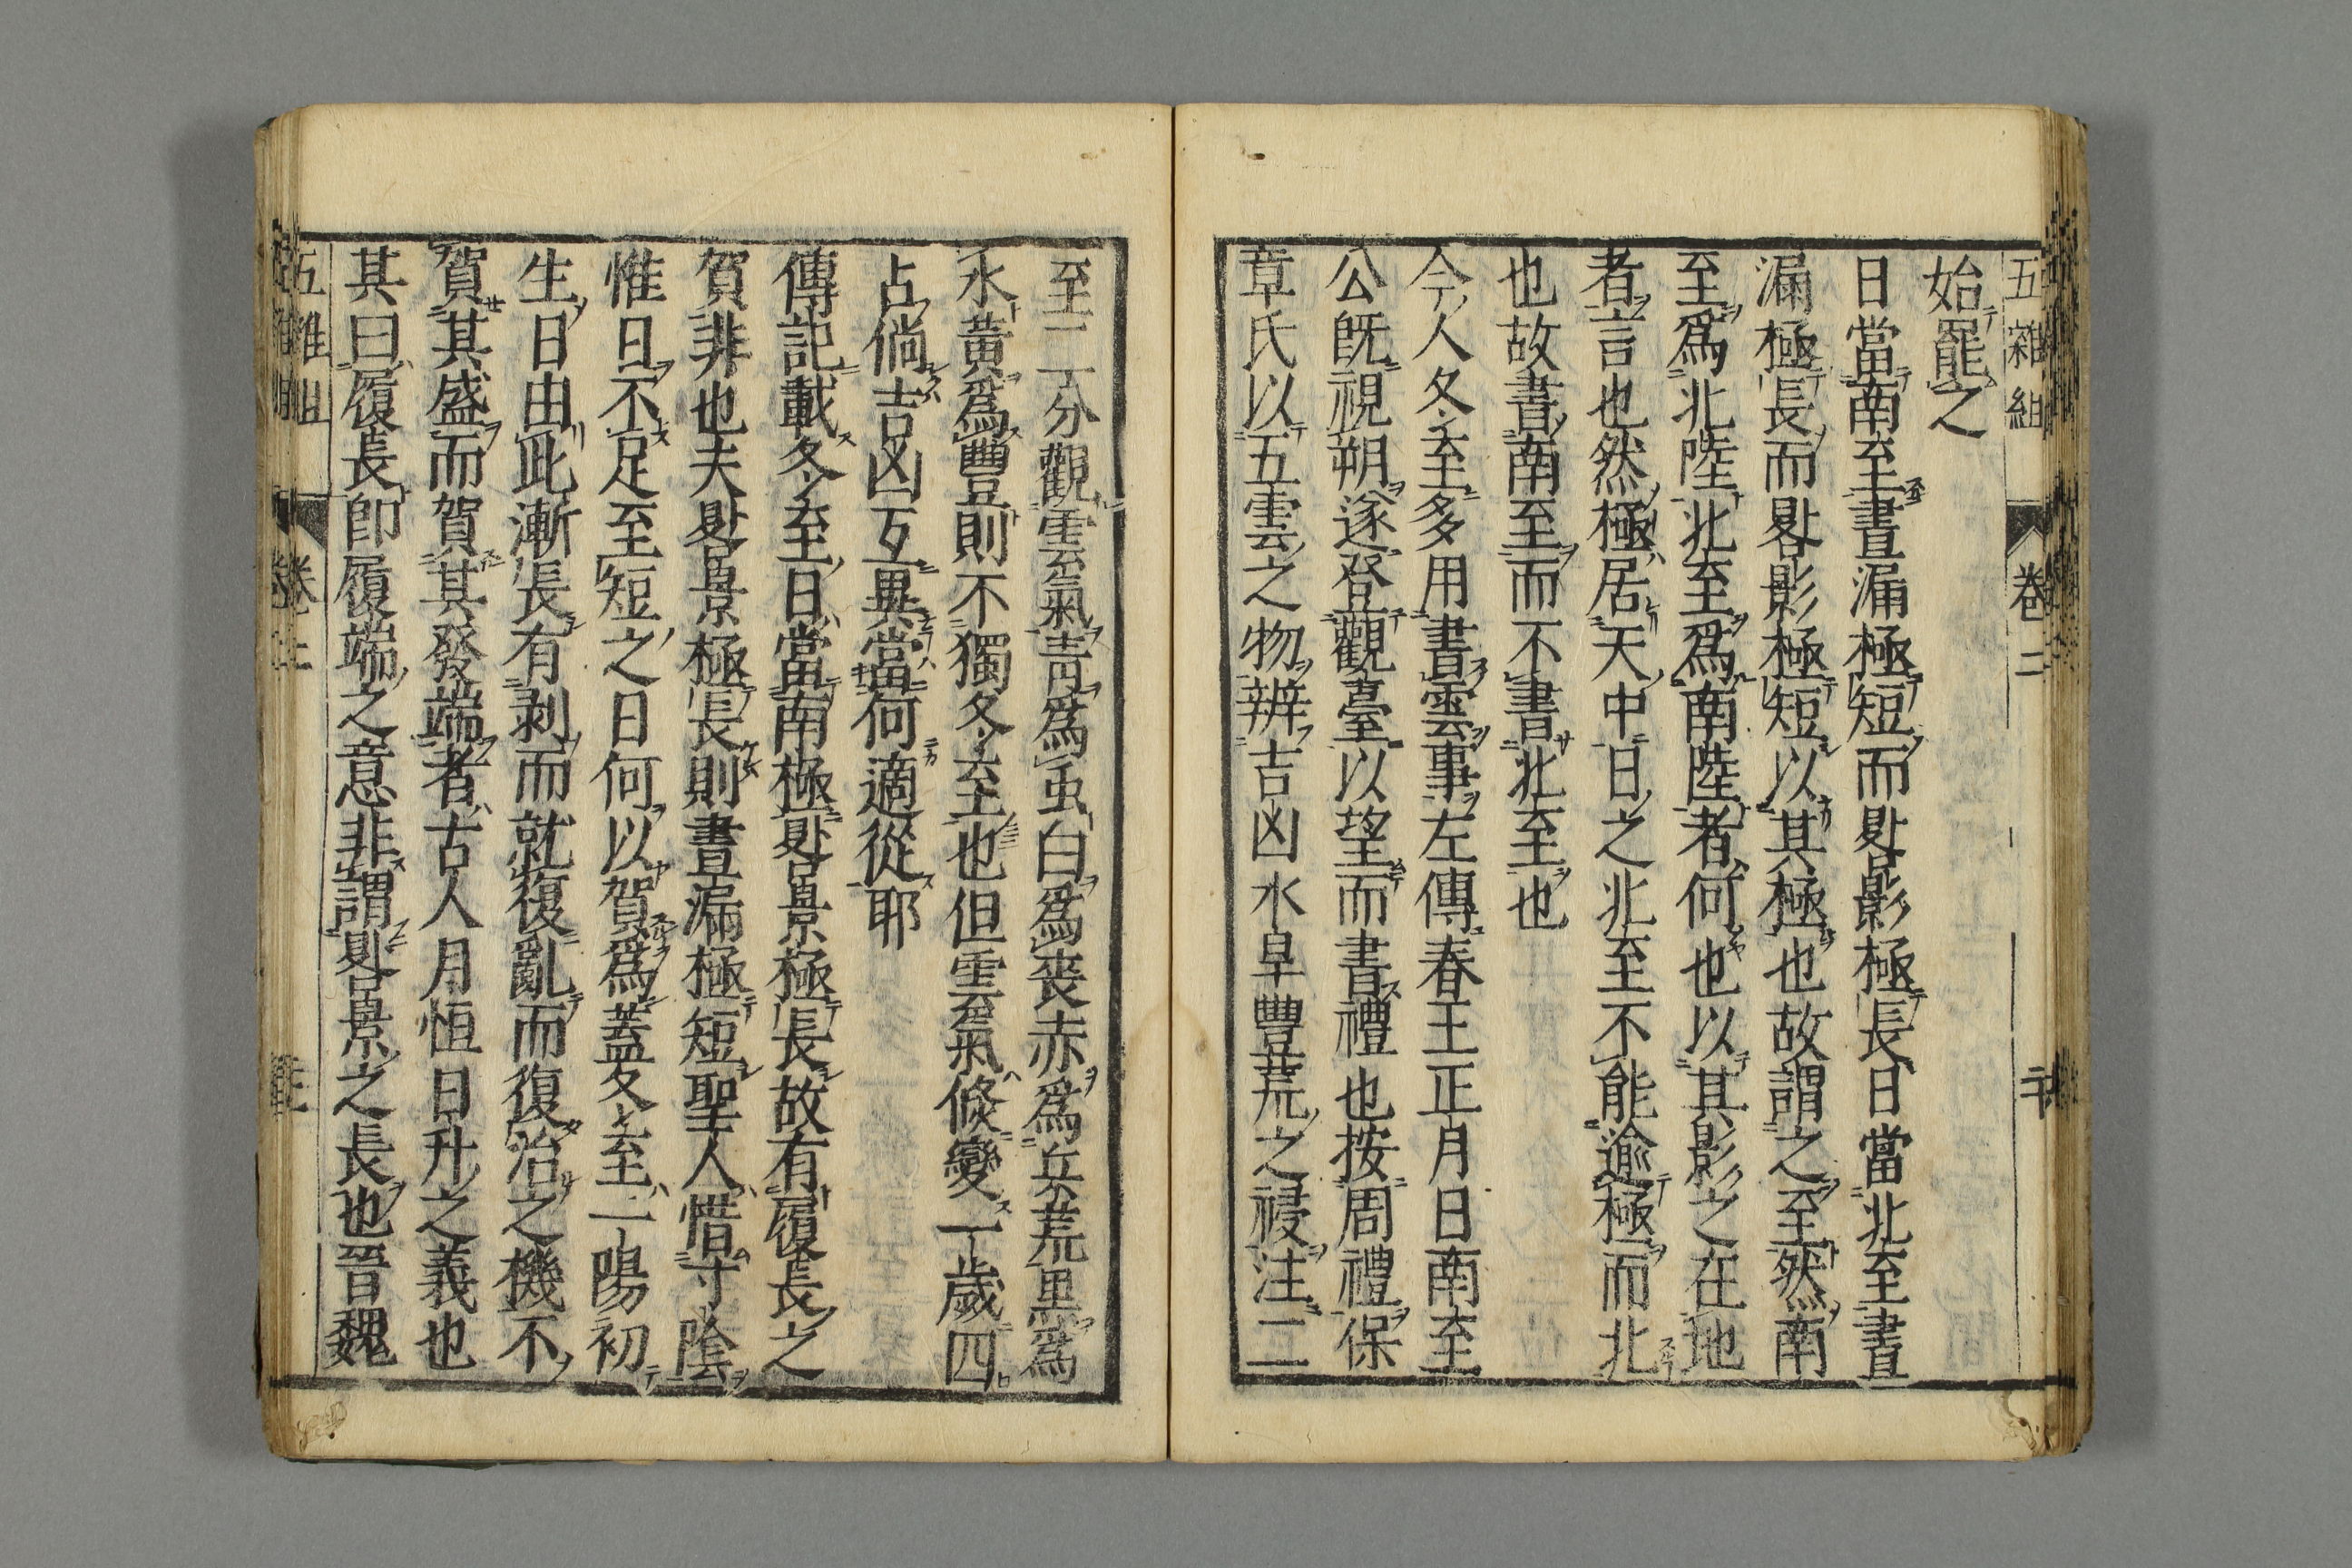 五雜組 卷二 二十
始罷之
日當南至晝漏極短而晷影極長日當北至晝
漏極長而晷影極短以其極也故謂之至然南
至爲北陸北至爲南陸者何也以其影之在地
者言也然極居天中日之北至不能逾極而北
也故書南至而不書北至也
今人冬至多用書雲事左傳春王正月日南至
公既視朔遂登觀臺以望而書禮也按周禮保
章氏以五雲之物辨吉凶水旱豐荒之祲注二
至二分觀雲氣青爲虫白爲喪赤爲兵荒黑爲
水黃爲豐則不獨冬至也但雲氣倐變一歲四
占倘吉凶互異當何適從耶
傳記載冬至日當南極晷景極長故有履長之
賀非也夫晷景極長則晝漏極短聖人惜寸陰
惟日不足至短之日何以賀爲蓋冬至一陽初
生日由此漸長有剥而就復亂而復治之機不
賀其盛而賀其發端者古人月恒日升之義也
其曰履長卽履端之意非謂晷景之長也晉魏
五雜組 卷二